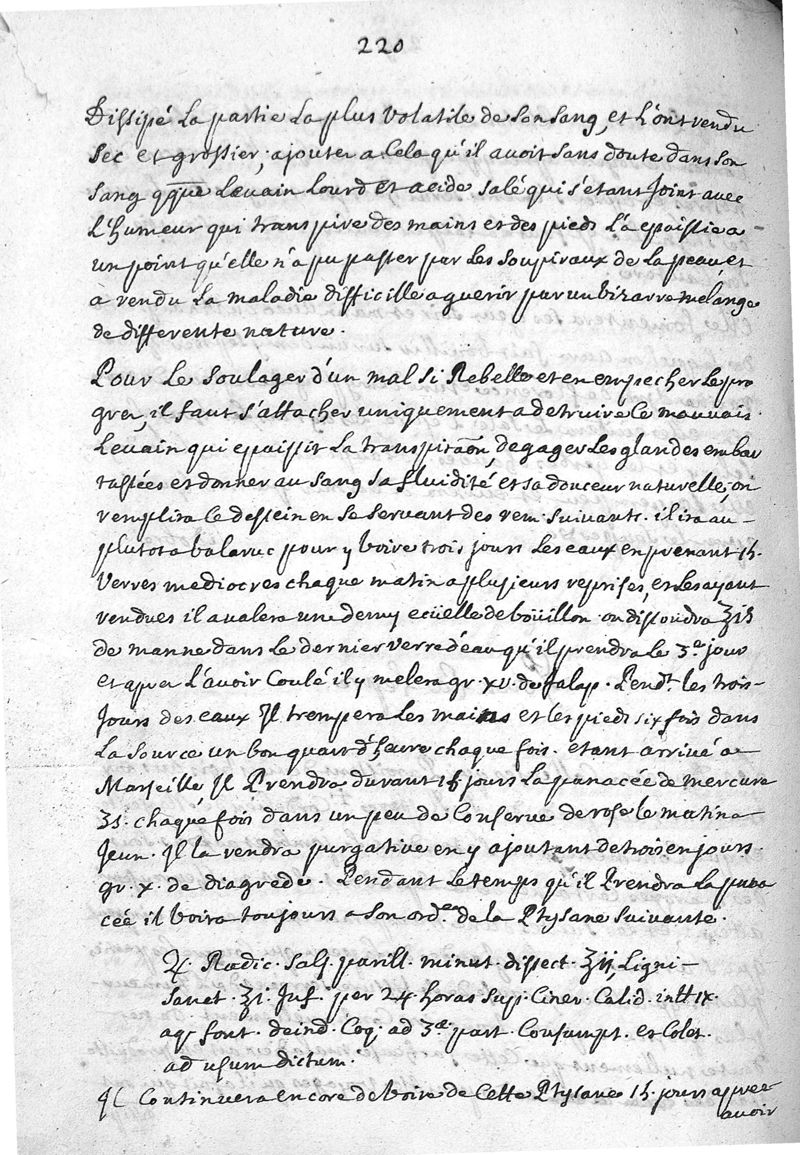 220
Dissipé La partie La plus Volatile de Son Sang, et L'ont rendu
Sec et grossier, ajouter a Cela qu'il avoit Sans doute dans Son
Sang qqque Levain Lourd et acide Salé qui s'etant Joint avec
L'humeur qui transpire des mains et des pieds L'a epaissie a
un point qu'elle n'a pu passer par Les Soupiraux de La peau, et
a rendu La maladie difficille a guerir par un bizarre melange
de differente nature.
Pour Le Soulager d'un mal Si Rebelle et en empecher Le pro
grez, il faut s'attacher uniquement a detruire Le mauvais
Levain qui epaissit La transpiraõn, degager Les glandes embar
rassées et donner au Sang Sa fluidité et Sa douceur naturelle, on
remplira Ce dessein en Se Servant des rem. Suivants. il ira au-
plutot a balaruc pour y boire trois jours Les eaux en prenant 15.
Verres mediocres chaque matin a plusieurs reprises, et Les ayant
rendues il avalera une demy ecüelle de boüillon. on dissoudra ʒiʒ
de manne dans Le dernier verre d'eau qu'il prendra Le 3.e jour
et aprez L'avoir Coulé il y melera gr. xv. de Jalap. Pend.t les trois-
Jours des eaux Il trempera Les mains et les pieds six fois dans
La Source un bon quart d'heure chaque fois. etant arrivé a
Marseille, Il Prendra durant 15 jours La panacée de mercure
Ʒi. chaque fois dans un peu de Conserve de rose le matin a
Jeun. Il la rendra purgative en y ajoutant de trois en jours.
gr. x. de diagrede. Pendant Le temps qu'il Prendra La pana
cée il boira toujours a Son ord.re de La Ptysane Suivante.
♃. Radic. Sals. parill. minut. dissect. ʒij, Ligni-
Sanct. ʒi. Inf. per 24 horas Sup. Ciner. Calid. in tt ix.
aq. font. deind. Coq. ad 3.ae part. Consumpt. et Colet.
ad usum dictum.
Il Continuera encore de boire de Cette Ptysane 15. jours aprez
avoir